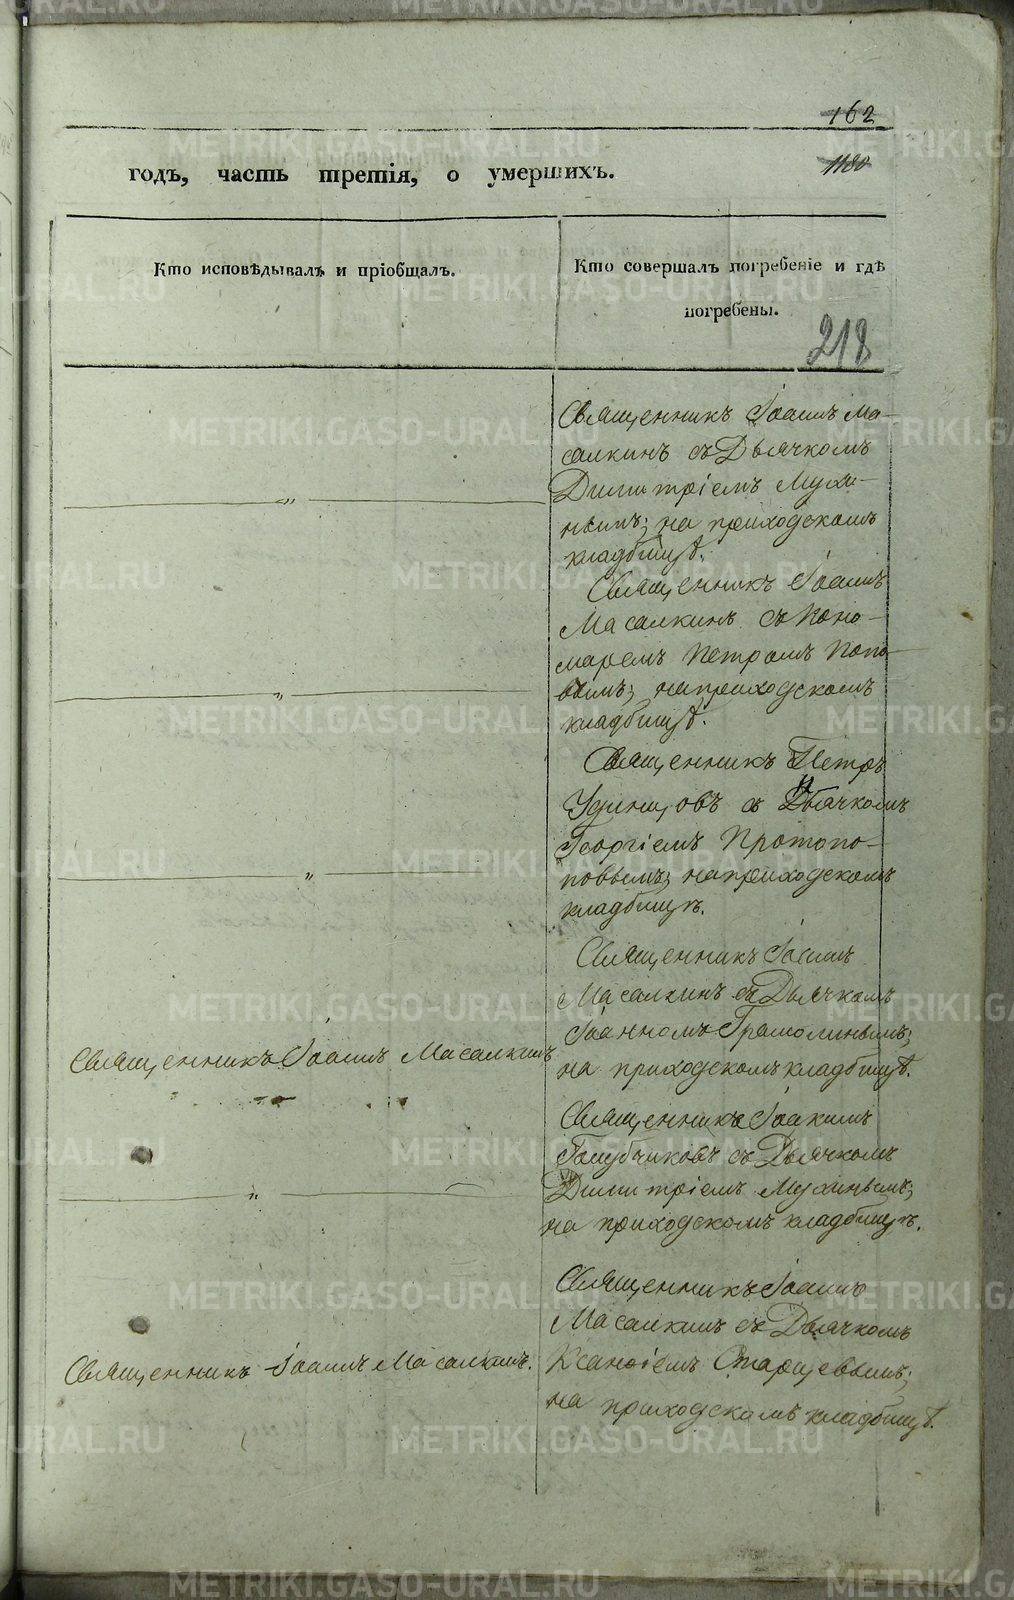 162
годъ, часть третія, о умершихъ.
1180
Кто исповѣдывалъ и пріобщалъ.
Кто совершалъ погребеніе и гдѣ
погребены.
218
Священникъ Іоаннъ Ма-
салкинъ съ Дьячкомъ
Димитріемъ Мухи-
нымъ; на приходскомъ
кладбищѣ.
Священникъ Іоаннъ
Масалкинъ съ Поно-
маремъ Петромъ Попо-
вымъ; на приходскомъ
кладбищѣ.
Священникъ Петръ
Удинцовъ съ Дьячкомъ
Георгіемъ Протопо-
повымъ; на приходскомъ
кладбищѣ.
Священникъ Іоаннъ
Масалкинъ съ Дьячкомъ
Іоанномъ Грамолинымъ;
на приходскомъ кладбищѣ.
Священникъ Іоаннъ Масалкинъ
Священникъ Іоакимъ
Голубчиковъ съ Дьячкомъ
Димитріемъ Мухинымъ;
на приходскомъ кладбищѣ.
Священникъ Іоаннъ
Масалкинъ съ Дьячкомъ
Ксанѳіемъ Старцевымъ;
на приходскомъ кладбищѣ.
Священникъ Іоаннъ Масалкинъ.
METRIKI.GASO-URAL.RU